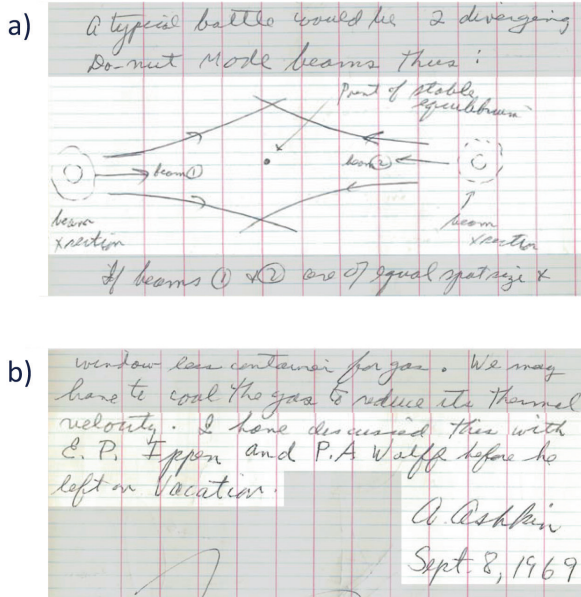 a)
A typical battle would be 2 diverging
Do-nut Mode beams thus :
Point of stable
equilibrium
beam ①
beam ②
beam
xsection
beam
xsection
If beams ① + ② are of equal spot size +
b)
window less container for gas. We may
have to cool the gas to reduce its thermal
velocity. I have discussed this with
E. P. Ippen and P.A Wolff before he
left on Vacation.
A. Ashkin
Sept. 8, 1969